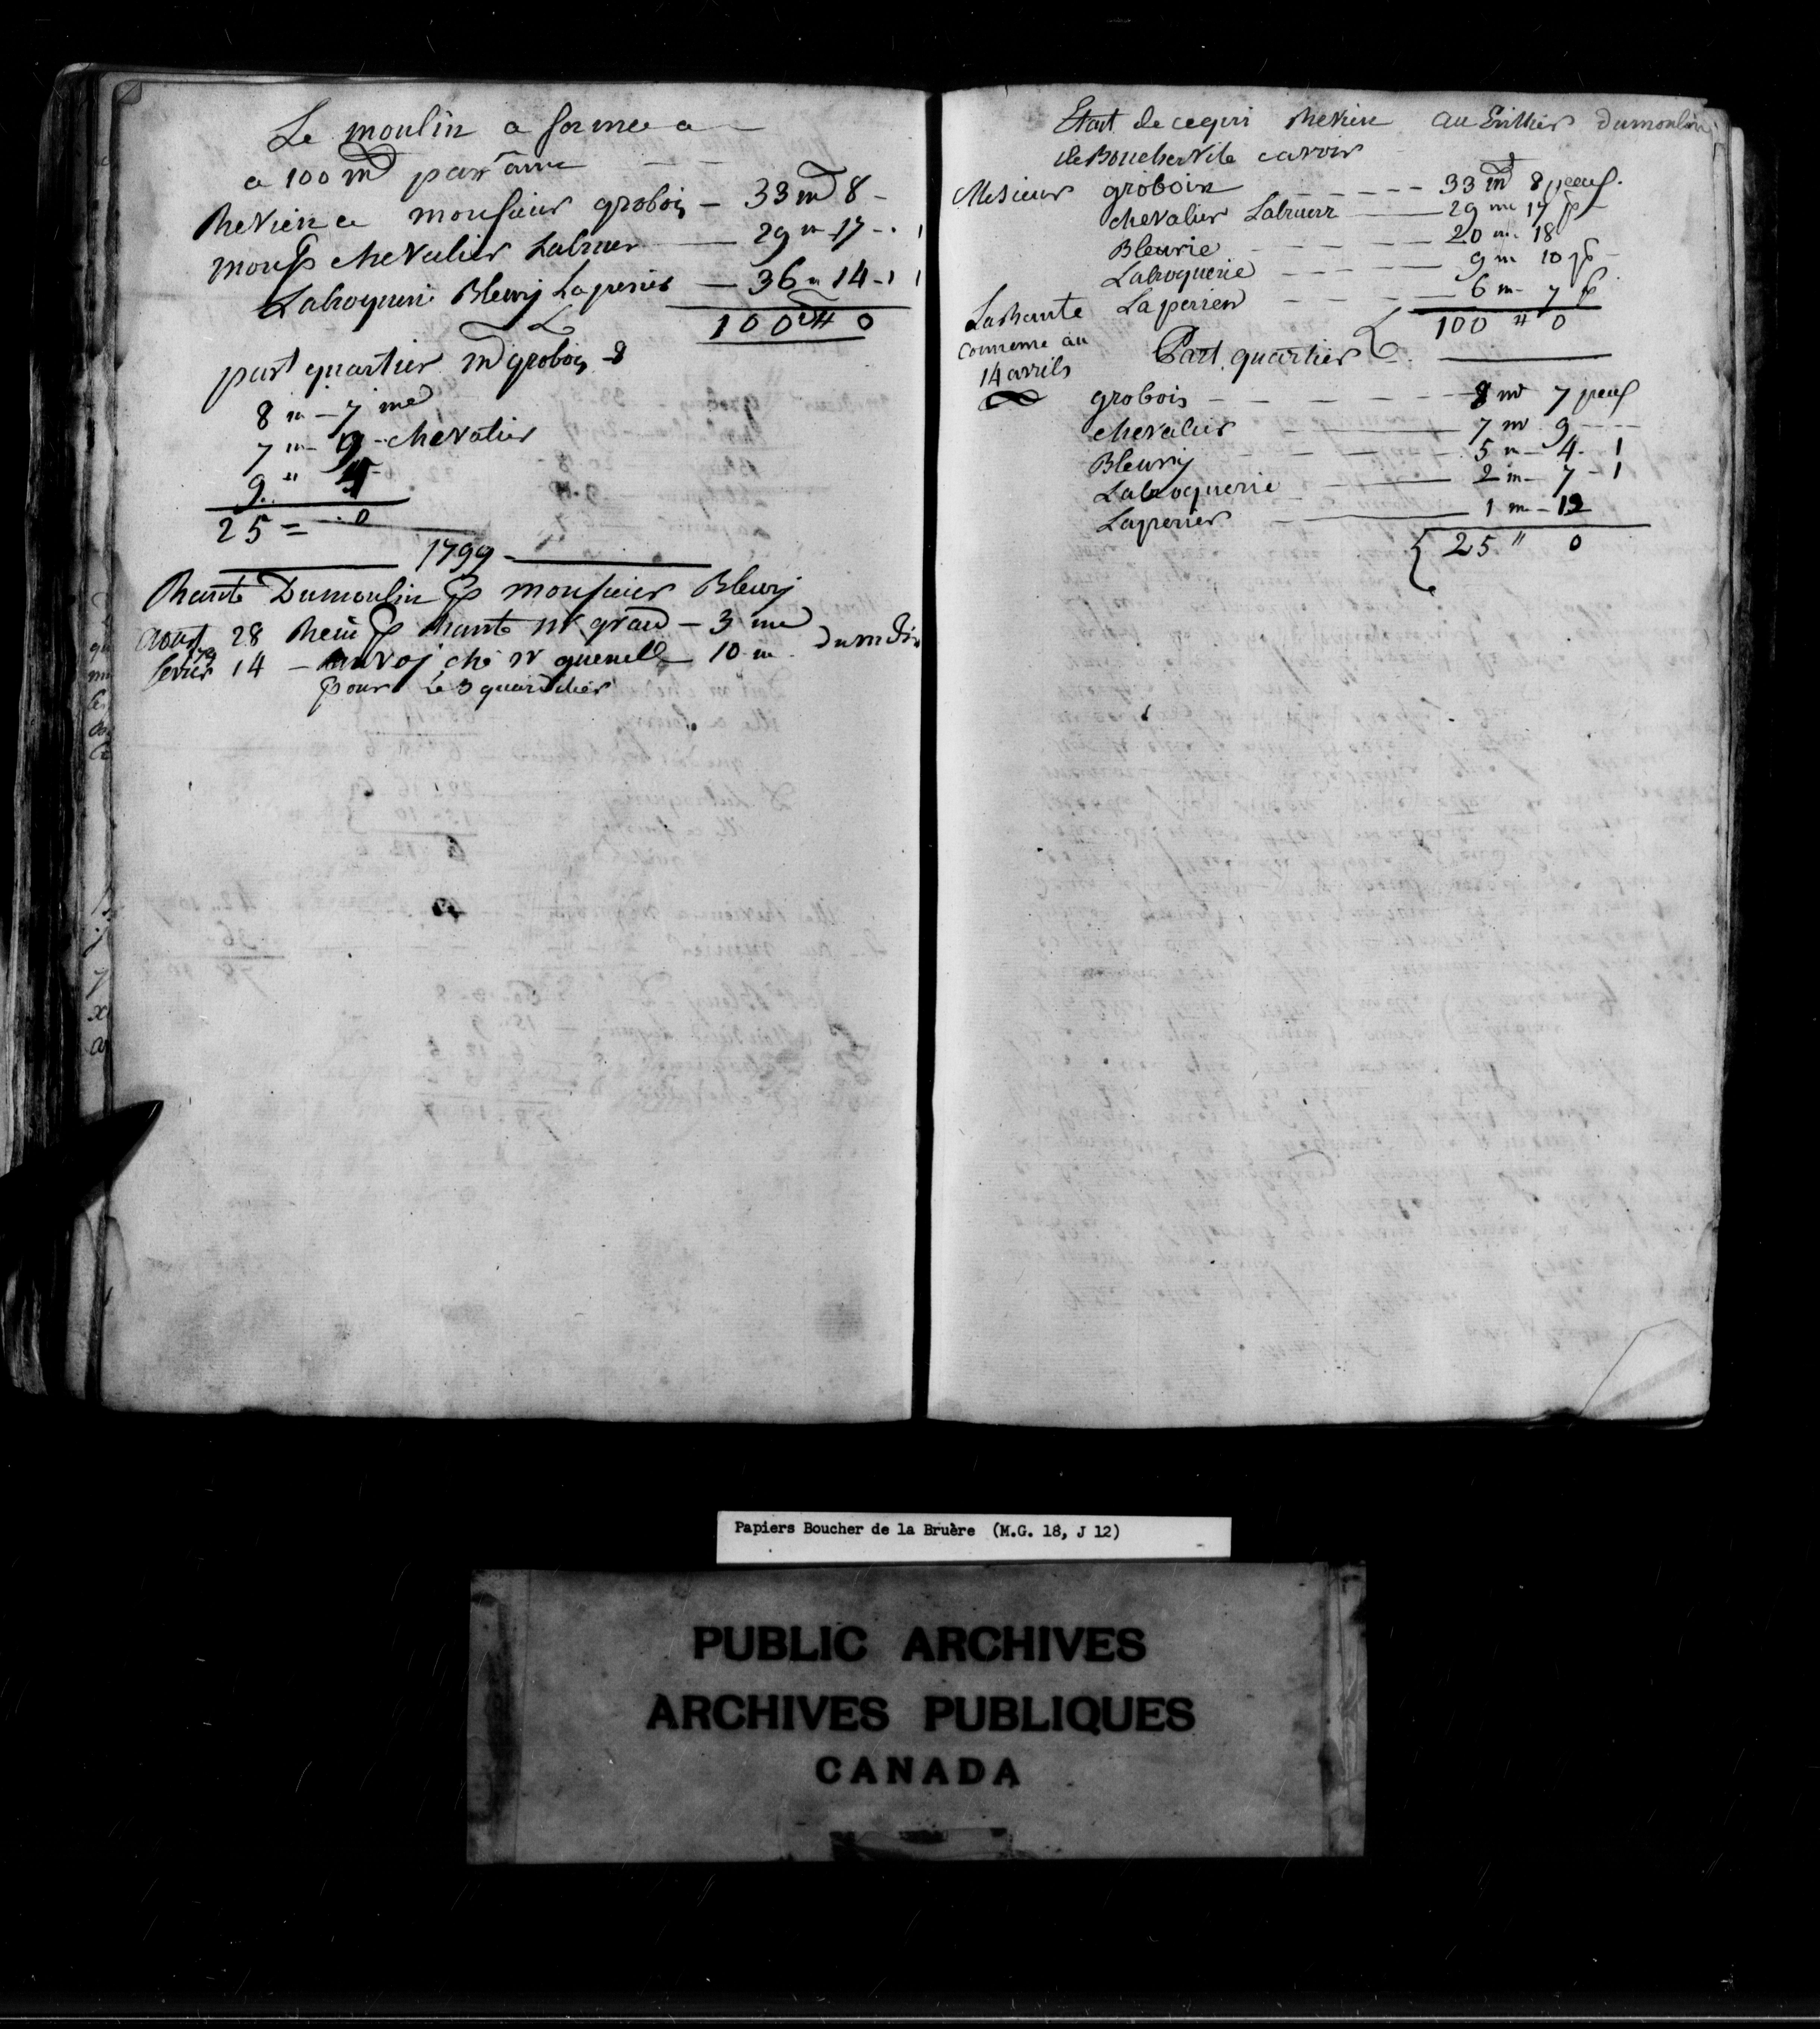 Le moulin a formee a
a 100 md par anne
Revien a monsieur grobois - 33 md 8 -
monsr chevalier Labruer - 29 m 17 - 1
Labroquerie Bleury Laperier - 36 m 14 - 1
100 " 0
part quartier md grobois
8 m - 7 md
7 m - 9 - chevalier
9 " 4
25 = 0
1799
Rante Dumoulin p monsieur Bleury
aoust 28 Reçu p Rante mr graud - 3 md
fevrier 14 - anvoj ché mr quenell - 10 m dumoulin
pour le 3 quardier
Etat de cequi Revien au Eritier dumoulin
de Boucherville cavoir
Mesieur groboix - 33 md 8 peuf
chevalier Labruerr - 29 m 17 p
Bleurie - 20 m 18
Labroquerie - 9 m 10 p
Laperier - 6 m - 7 p
100 " 0
La Rante
commence au
14 avrils
Part quartier
grobois - 8 md 7 peuf
chevalier - 7 m 9
Bleury - 5 m 4 - 1
Labroquerie - 2 m 7 - 1
Laperier - 1 m - 12
25 " 0
Papiers Boucher de la Bruère (M.G. 18, J 12)
PUBLIC ARCHIVES
ARCHIVES PUBLIQUES
CANADA